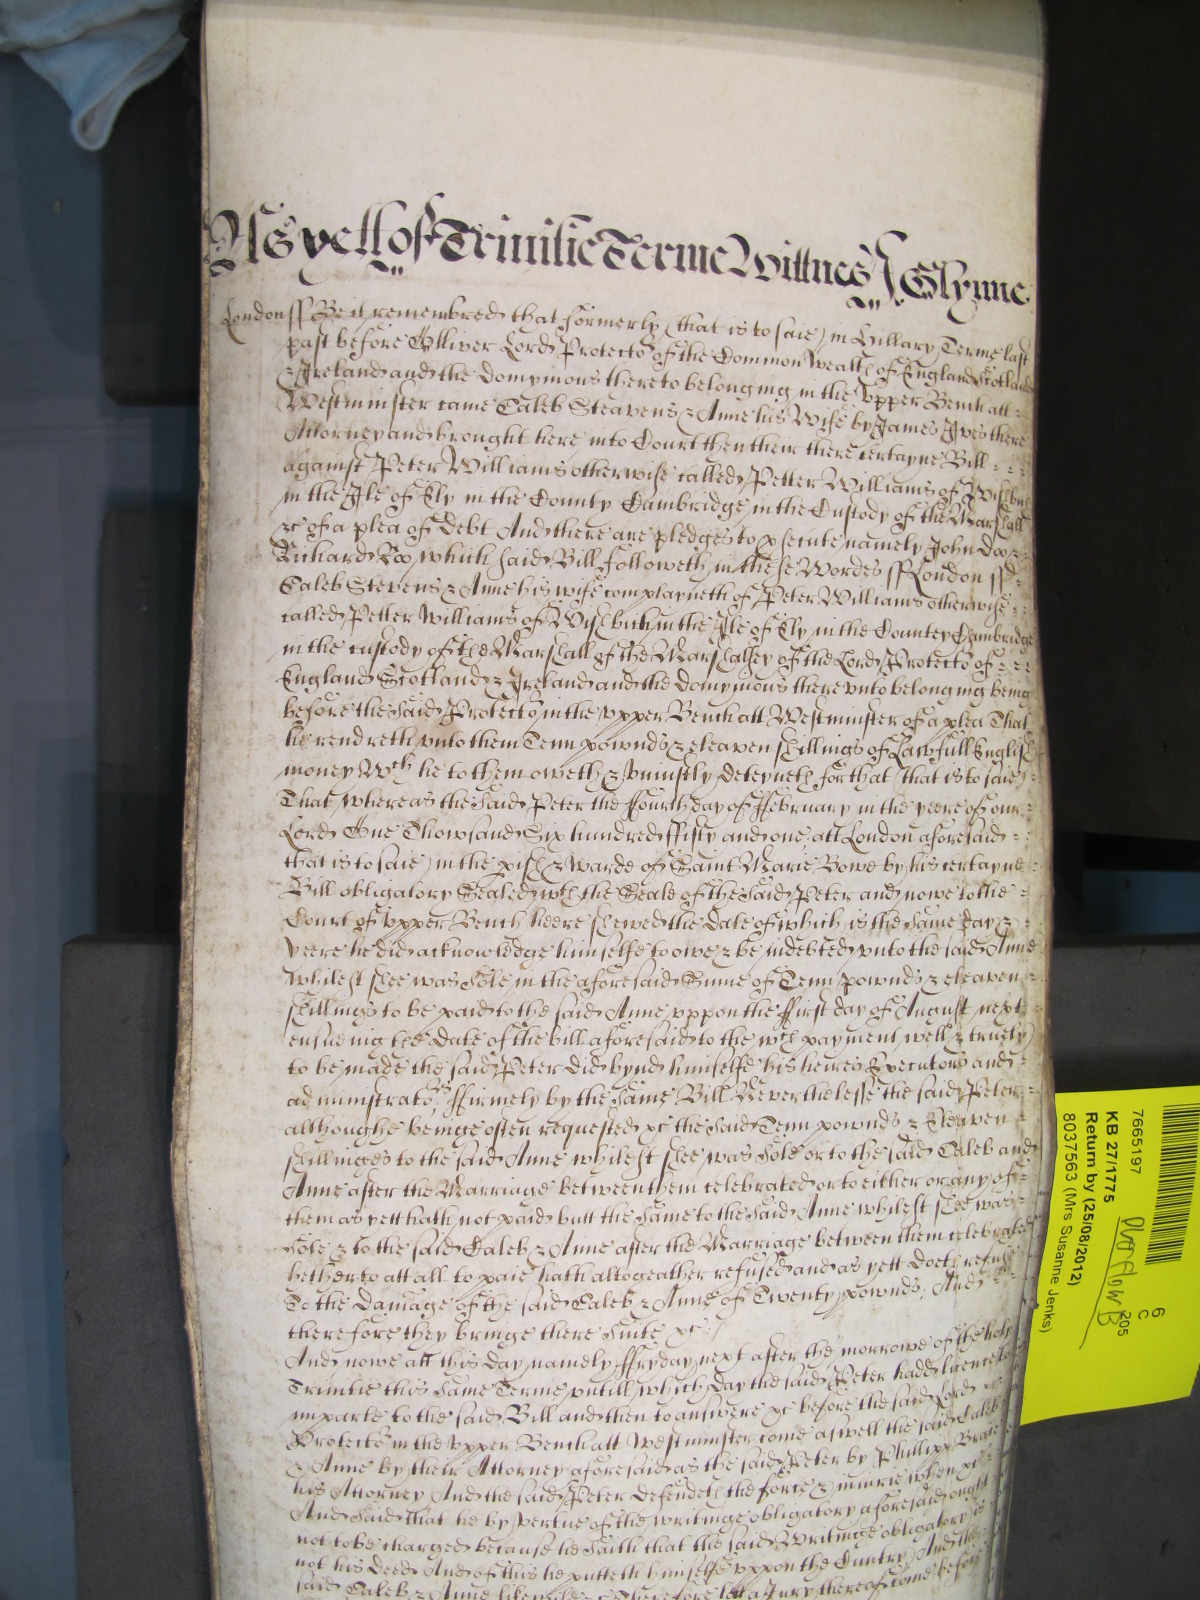 As yett of Trinitie Terme Wittnes J Glynne
London ss Be it remembred that formerly (that is to saie) in Hillary Terme last
past before Olliver Lord Protector of the Common Wealth of England Scotland
& Ireland and the domynions thereto belonging in the Upper Bench att
Westminster came Caleb Steavens & Anne his Wife by James Ives there
Attorney and brought here into Court then their there certayne Bill
against Peter Williams otherwise called Petter Williams of Wisbich
in the Ile of Ely in the County Cambridge in the Custody of the Marshall
&c of a plea of Debt And there are pledges to prosecute namely John Doo &
Richard Roo which said Bill followeth in these Wordes ss London ss
Caleb Stevens & Anne his wife complayneth of Peter Williams otherwise
called Petter Williams of Wisbich in the Ile of Ely in the Countey Cambridge
in the custody of the Marshall of the Marshalsey of the Lord Protector of
England Scotland & Ireland and the domynions there unto belonging being
before the said Protector in the upper Bench att Westminster of a plea That
he rendreth unto them Tenn pownds & eleaven shillings of Lawfull English
money Wch he to them oweth & uniustly deteyneth for that (that is to saie)
That whereas the said Peter the ffourth day of ffebruary in the yeere of our
Lord One Thowsand Six hundred ffifty and one att London aforesaid
that is to saie in the pish & warde of Saint Marie Bowe by his certayne
Bill obligatory Sealed wth the Seale of the said Peter and nowe to the
Court of upper Bench heere shewed the date of which is the same day &
yeere he did acknowledge himselfe to owe & be indebted unto the said Anne
whilest shee was sole in the aforesaid Summe of Tenn pownds & eleaven
shillings to be paid to the said Anne uppon the ffirst day of August next
ensueing the date of the bill aforesaid to the wch payment well & truely
to be made the said Peter did bynd himselfe his heires Executors and
administrators ffirmely by the same Bill Neverthelesse the said Peter
althoughe beinge often requested &c the said Tenn pownds & Eleaven
shillinges to the said Anne whilest shee was sole or to the said Caleb and
Anne after the Marriage betweene them celebrated or to either or any of
them as yett hath not paid butt the same to the said Anne whilest shee was
sole & to the said Caleb & Anne after the Marriage between them celebrated
hetherto att all to paie hath altogeather refused and as yett doeth refuse
To the damage of the said Caleb & Anne of Twenty pownds; And
therefore they bringe there suite &c /
And nowe att this day namely ffryday next after the morrowe of the holy
Trinitie this same Terme untill which day the said Peter hadd licence to
imparle to the said Bill and then to answere &c before the said Lord
Protector in the upper Bench att Westminster come aswell the said Caleb
& Anne by their Attorney aforesaid as the said Peter by Phillipp
his Attorney And the said Peter defendeth the force & iniurie when &c
And said that he by vertue of the writinge obligatory aforesaid ought
not to be charged because he saith that the said Writinge obligatory is
not his deed And of this he putteth himselfe uppon the Cuntry And the
said Caleb & Anne likewise &c Therefore lett a Jury thereof come before
7665197
KB 27/1775
Return by (25/08/2012)
8037563 (Mrs Susanne Jenks)
Overflow B
6
C
205